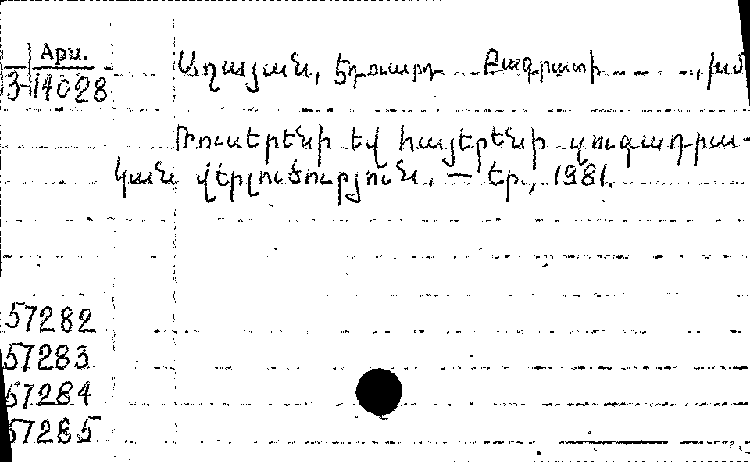 Арм.
3-14028
Աղայան, Էդուարդ Բագրատի ..., խմ
Ռուսերենի եվ հայերենի զուգադրա-
կան վերլուծություն. — Եր., 1981.
57282
57283
57284
57285